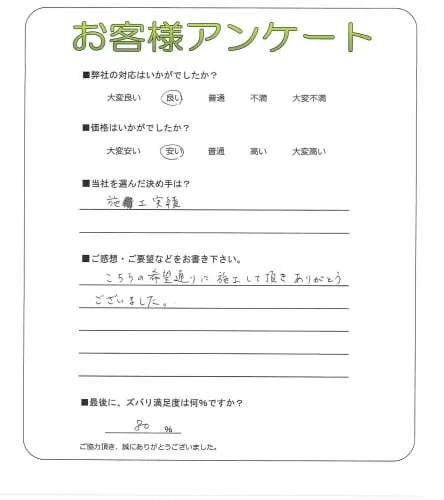 お客様アンケート
■弊社の対応はいかがでしたか？
大変良い 良い 普通 不満 大変不満
■価格はいかがでしたか？
大変安い 安い 普通 高い 大変高い
■当社を選んだ決め手は？
施工実績
■ご感想・ご要望などをお書き下さい。
こちらの希望通りに施工して頂きありがとう
ございました。
■最後に、ズバリ満足度は何％ですか？
80 %
ご協力頂き、誠にありがとうございました。